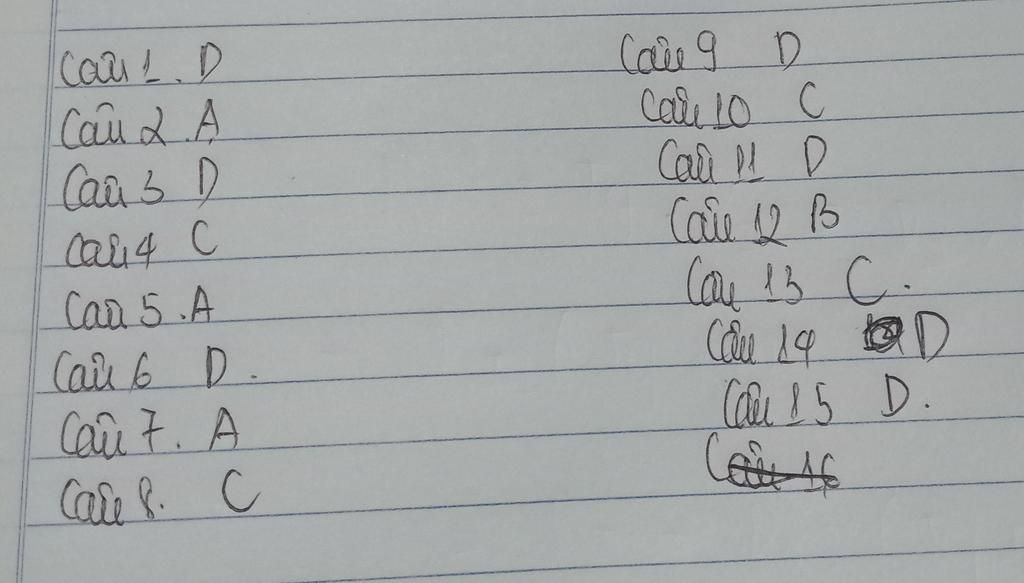 Câu 1. D
Câu 2. A
Câu 3 D
Câu 4 C
Câu 5. A
Câu 6 D.
Câu 7. A
Câu 8. C
Câu 9 D
Câu 10 C
Câu 11 D
Câu 12 B
Câu 13 C.
Câu 14 D
Câu 15 D.
Câu 16